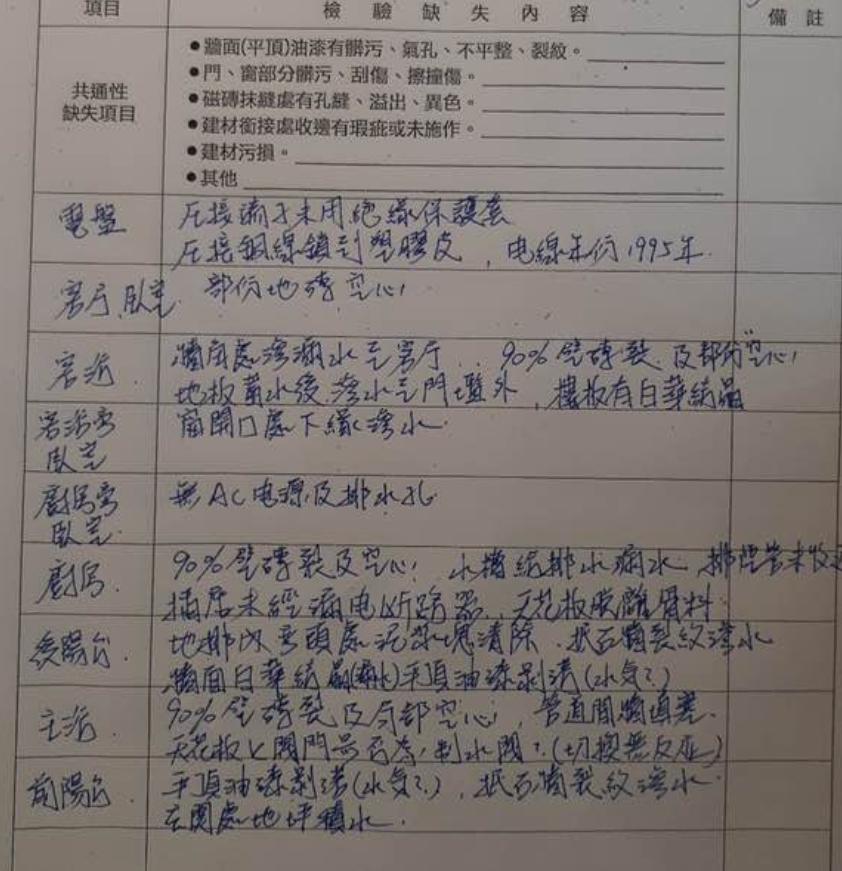 項目 檢驗缺失內容 備註
共通性
缺失項目
●牆面(平頂)油漆有髒污、氣孔、不平整、裂紋。
●門、窗部分髒污、刮傷、擦撞傷。
●磁磚抹縫處有孔縫、溢出、異色。
●建材銜接處收邊有瑕疵或未施作。
●建材污損。
●其他
電盤 压接端子未用絕緣保護套
压接銅線鎖到塑膠皮，电線年份1995年.
客厅.臥室. 部份地磚空心
客浴. 牆角處滲漏水至客厅. 90%壁磚裂及部份空心
地板蓄水後滲水至門檻外，樓板有白華結晶
客浴旁
臥室
窗開口處下緣滲水.
廚房旁
臥室.
無AC电源及排水孔.
廚房. 90%壁磚裂及空心! 水槽 排水漏水. 排煙管未收
插座未經漏电断路器. 天花板脫離骨料.
後陽台. 地排 彎頭處泥 塊清除. 抵石牆裂紋滲水
牆面白華結晶 平頂油漆剝落(水気?)
主浴. 90%壁磚裂及局部空心，管道間牆填塞.
天花板上閥門是否為制水閥?(切換無反应)
前陽台. 平頂油漆剝落(水気?)，抵石牆裂紋滲水.
玄関處地坪積水.